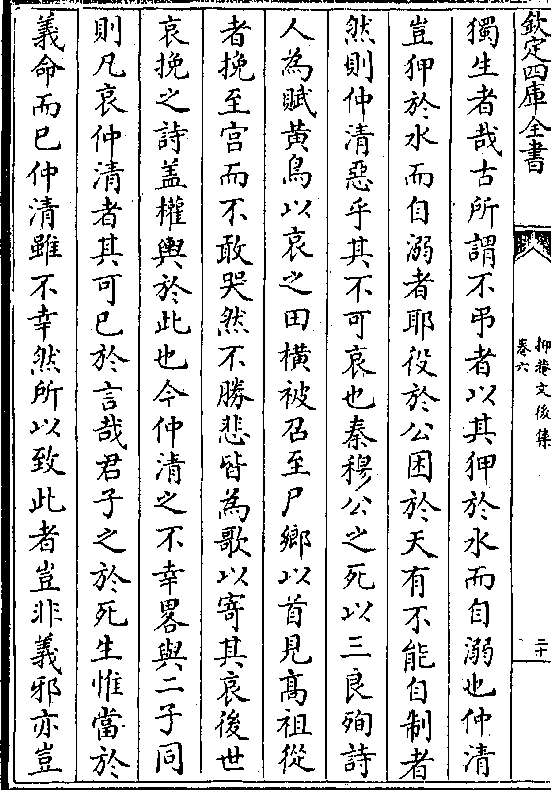 欽定四庫全書
抑菴文後集
卷六
二十
獨生者哉古所謂不弔者以其狎於水而自溺也仲清
豈狎於水而自溺者耶役於公困於天有不能自制者
然則仲清惡乎其不可哀也秦穆公之死以三良殉詩
人為賦黄鳥以哀之田横被召至尸鄉以首見髙祖從
者挽至宫而不敢哭然不勝悲皆為歌以寄其哀後世
哀挽之詩盖權輿於此也今仲清之不幸畧與二子同
則凡哀仲清者其可已於言哉君子之於死生惟當於
義命而已仲清雖不幸然所以致此者豈非義邪亦豈